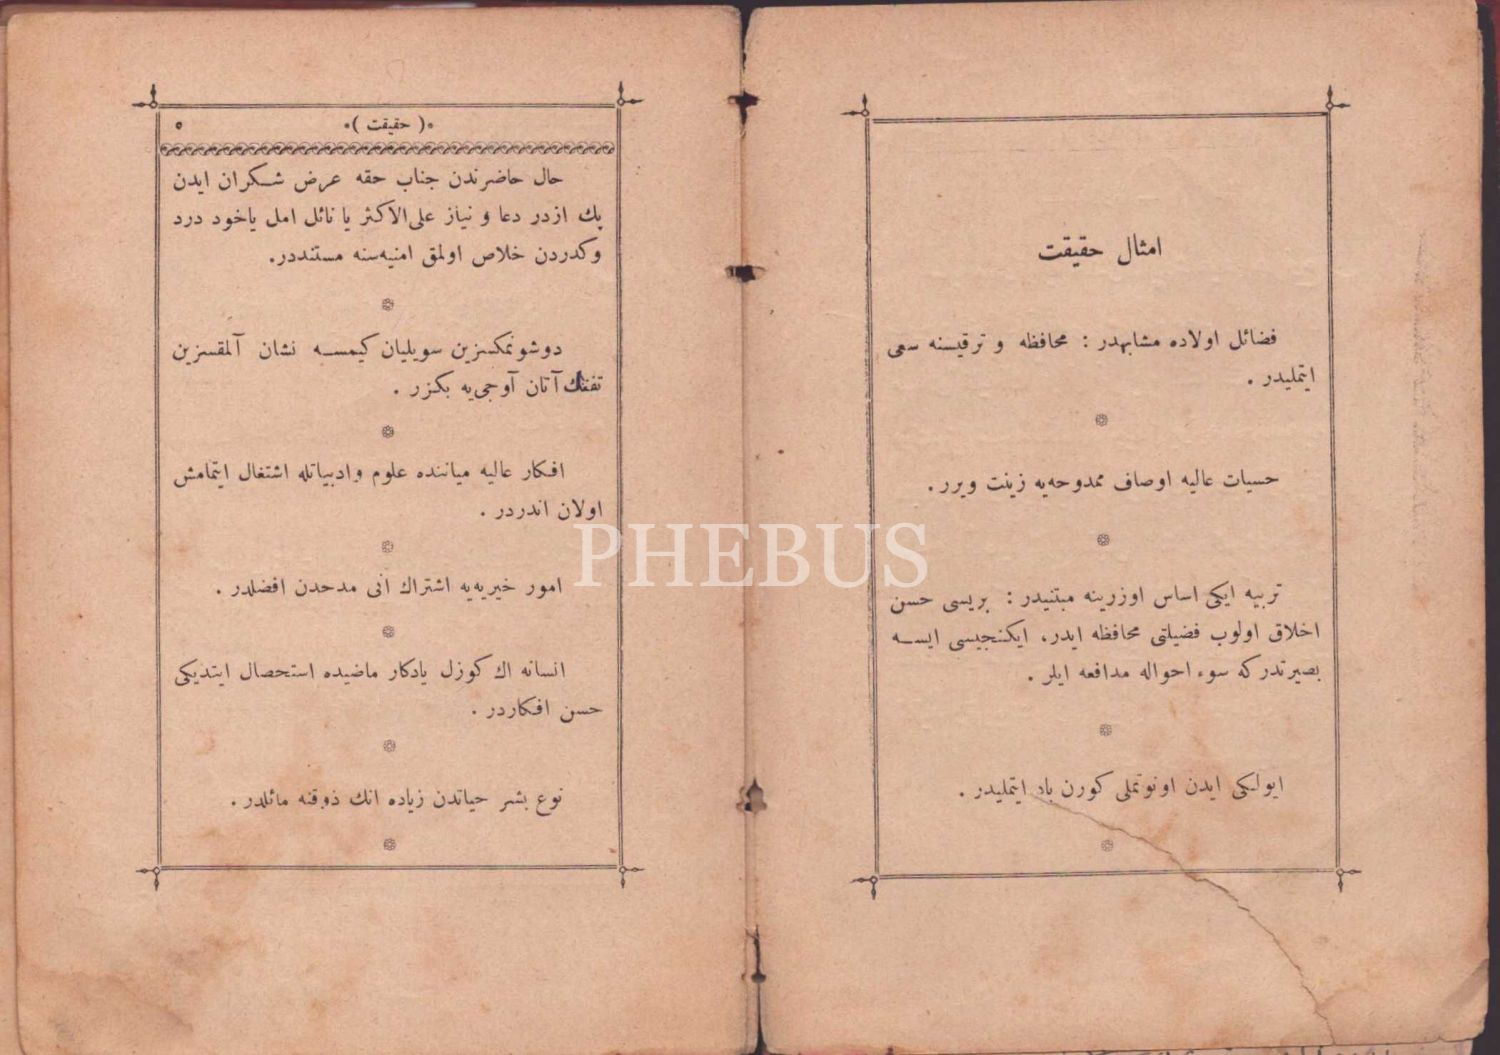 امثال حقیقت
فضائل اولاده مشابهدر : محافظه و ترقیسنه سعی
ایتملیدر .
حسیات عالیه اوصاف ممدوحه‌یه زینت ویرر .
تربیه ایکی اساس اوزرینه مبتنیدر : بریسی حسن
اخلاق اولوب فضیلتی محافظه ایدر، ایکنجیسی ایسه
بصیرتدرکه سوء احواله مدافعه ایلر .
ایولکی ایدن اونوتملی کورن یاد ایتملیدر .
﴿ حقیقت ﴾ ٥
حال حاضرندن جناب حقه عرض شکران ایدن
پك ازدر دعا و نیاز علی‌الاکثر یا نائل امل یاخود درد
وکدردن خلاص اولمق امنیه‌سنه مستنددر.
دوشونمکسزین سویلیان کیمسه نشان آلمقسزین
تفنك آتان آوجی‌یه بکزر .
افکار عالیه میاننده علوم وادبیاتله اشتغال ایتمامش
اولان اندردر .
امور خیریه‌یه اشتراك انی مدحدن افضلدر .
انسانه اك کوزل یادکار ماضیده استحصال ایتدیکی
حسن افکاردر .
نوع بشر حیاتدن زیاده انك ذوقنه مائلدر .
PHEBUS